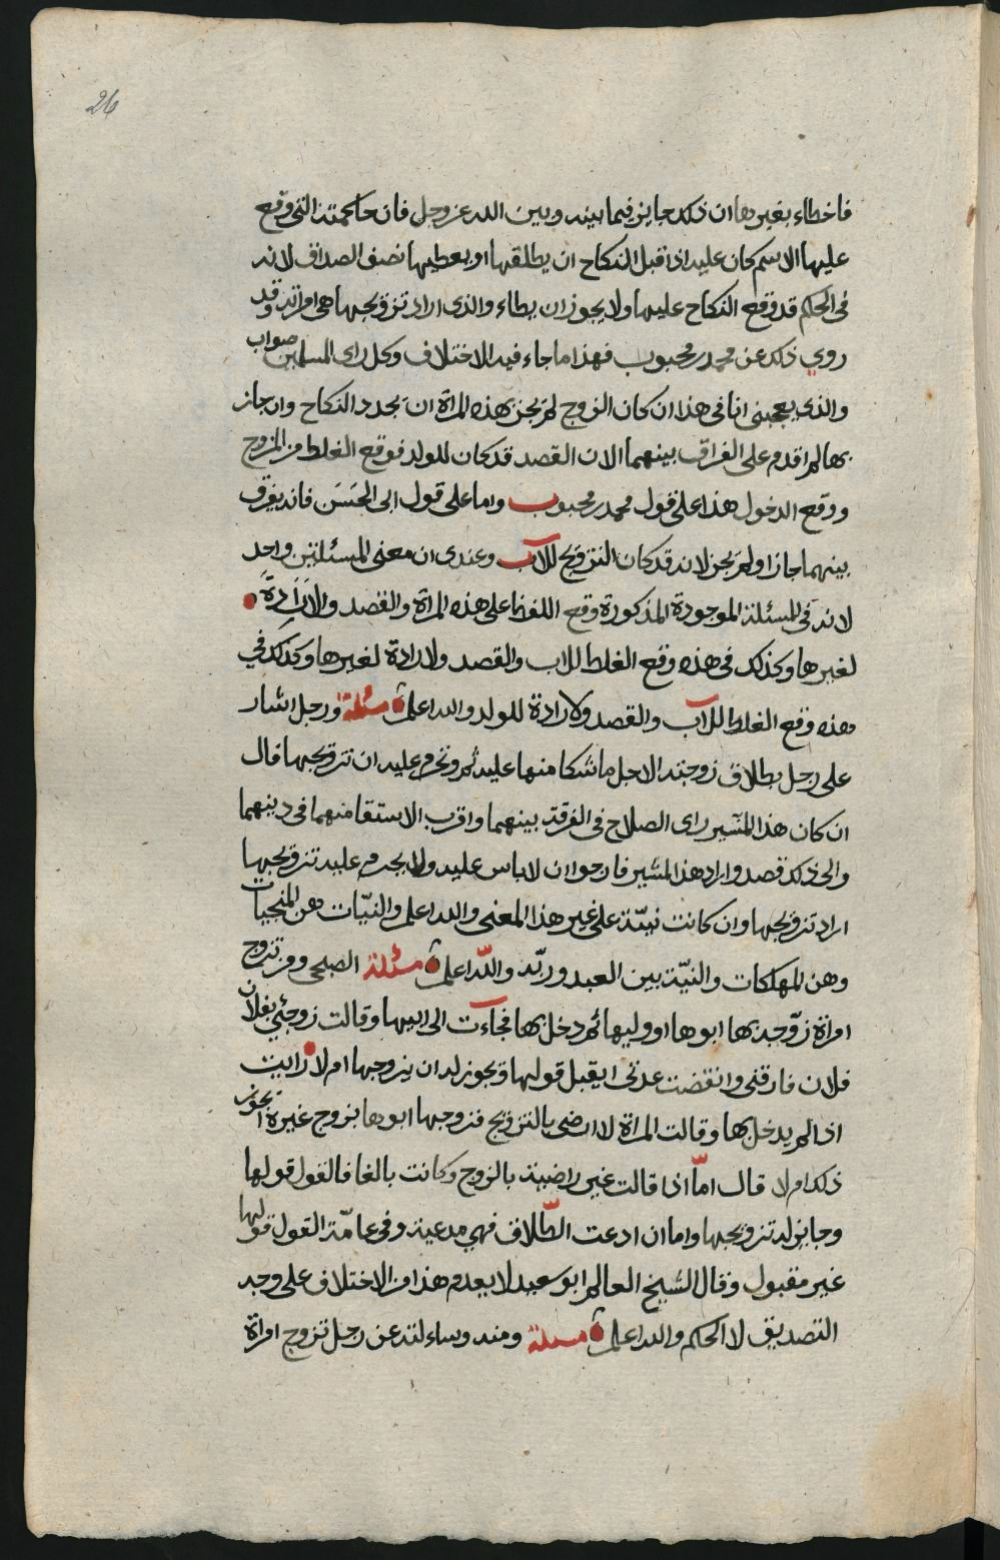 26
فاخطاء بغيرها ان ذلك جايز فيما بينه وبين الله عز وجل فان حاكمته التي وقع
عليها الاسم كان عليه اذا قبل النكاح ان يطلقها او يعطيها نصف الصداق لانه
في الحكم قد وقع النكاح عليها ولا يجوز ان يطاء والذي اراد تزويجها هي امراته وقد
روي ذلك عن محمد بن محبوب فهذا ما جاء فيه الاختلاف وكل راى المسلمين صواب
والذي يعجبني انا في هذا ان كان الزوج لم يجز بهذه المراة ان يجدد النكاح وان جاز
بها لم اقدم على الفراق بينهما الان القصد قد كان للولد فوقع الغلط من المزوج
ووقع الدخول هذا على قول محمد بن محبوب واما على قول ابى الحَسَن فانه يفرق
بينهما جاز اولم يجز لانه قد كان التزويج للاب وعندى ان معنى المسئلتين واحد
لانه في المسئلة الموجودة المذكورة وقع اللفظ على هذه المراة والقصد والارَادةَ
لغيرها وكذلك في هذه وقع الغلط للاب والقصد ولارادة لغيرها وكذلك في
هذه وقع الغلط للاب والقصد ولارادة للولد والله اعلم مسئلة ورجل اشار
على رجل بطلاق زوجته الاجل ما شكا منها عليه ثم وتحرم عليه ان تزويجها قال
ان كان هذا المشير راى الصلاح في الفرقة بينهما واقرب الاستقامتهما في دينهما
والى ذلك قصد واراد هذا المشير فارجو ان لا باس عليه ولا يحرم عليه تزويجها
اراد تزويجها وان كانت نيته على غير هذا المعنى والله اعلم والنيّات هن المنجيات
وهن المهلكات والنيّة بين العبد وربّه واللّه اعلم مسئلة الصبحى ومن تزوج
امراة زوّجه بها ابوها او وليها ثم دخل بها فجاءت الى ابيها وقالت زوجني بفلان
فلان فارقني وانقضت عدتى ايقبل قولها ويجوز له ان يزوجها ام لا ارايت
اذا لم يدخل بها وقالت المراة لا ارضى بالتزويج فزوجها ابوها بزوج غيره ايجوز
ذلك ام لا قال امّا اذا قالت غير راضية بالزوج وكانت بالغا فالقول قولها
وجايز له تزويجها واما ان ادعت الطّلاق فهي مدعية وفي عامّة القول قولها
غير مقبول وقال الشيخ العالم ابو سعيد لا يعدم هذا من الاختلاف على وجه
التصديق لا الحكم والله اعلم مسئلة ومنه وساءلته عن رجل تزوج امراة